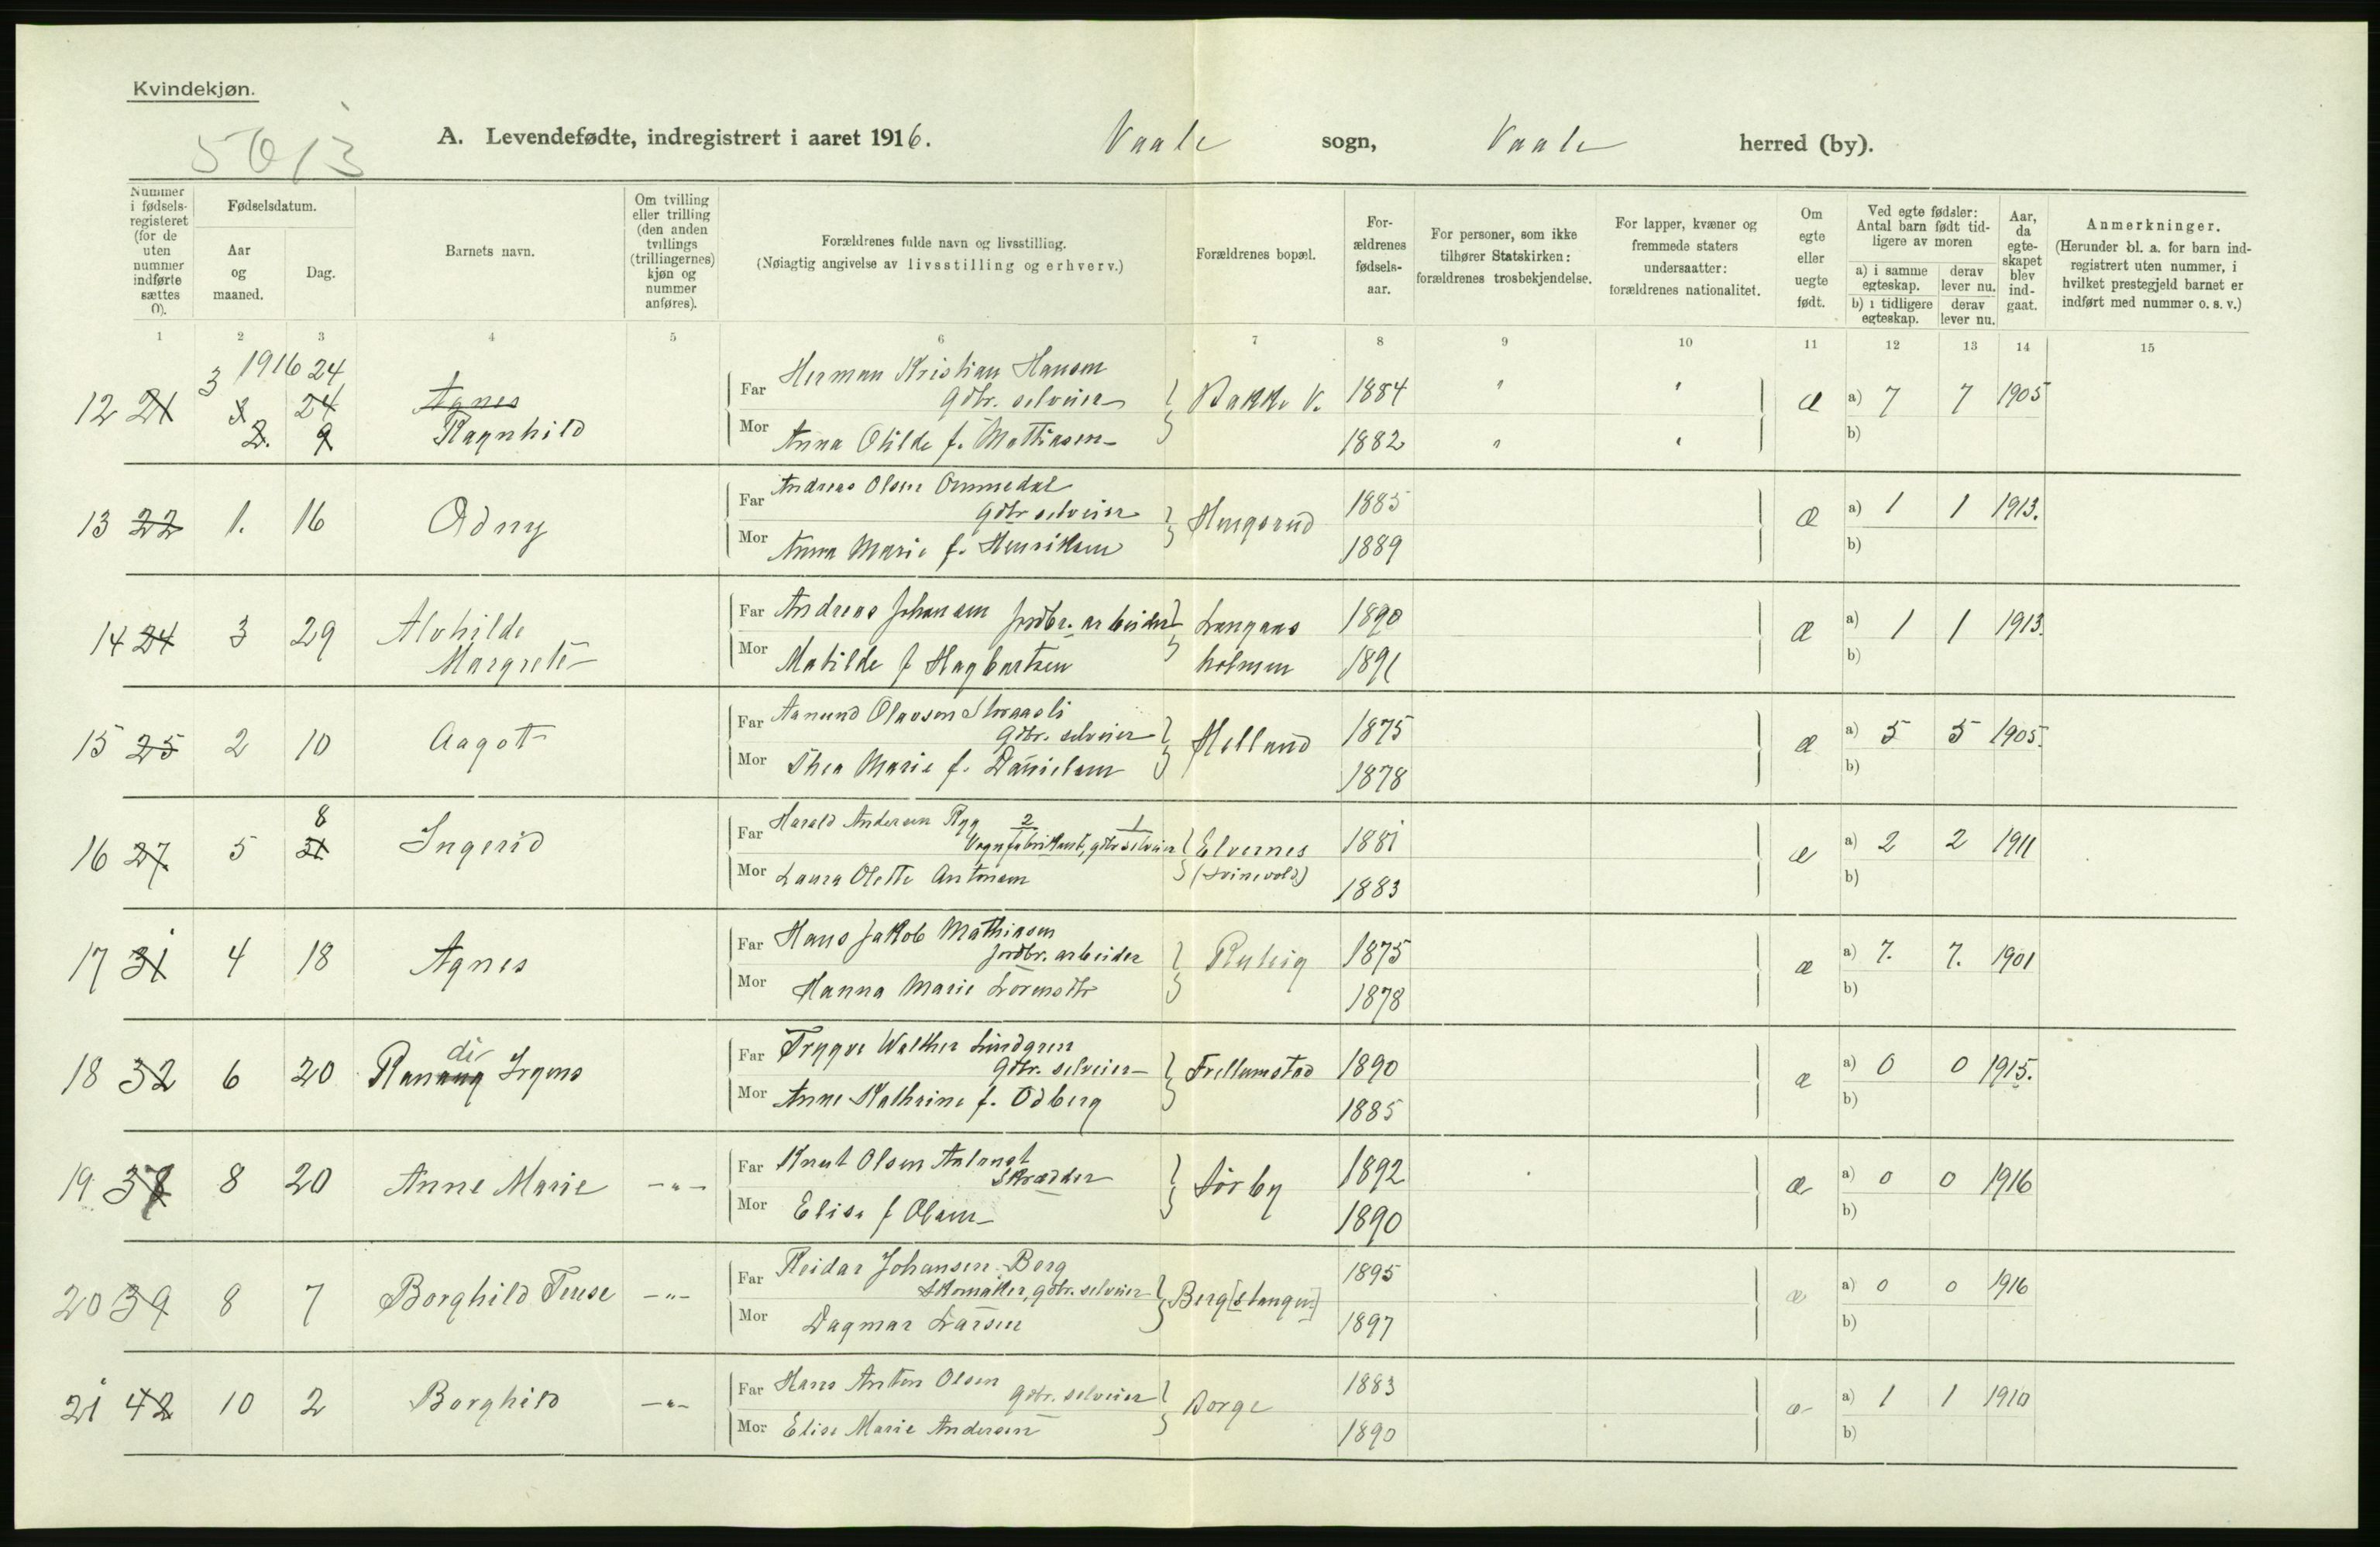 Kvindekjøn.
5013
A. Levendefødte, indregistrert i aaret 1916. Vaale sogn, Vaale herred (by).
Nummer i fødselsregisteret (for de uten nummer indførte sættes 0).
Fødselsdatum.
Aar og maaned.
Dag.
Barnets navn.
Om tvilling eller trilling (den anden tvillings (trillingernes) kjøn og nummer anføres).
Forældrenes fulde navn og livsstilling.
(Nøiagtig angivelse av livsstilling og erhverv.)
Forældrenes bopæl.
Forældrenes fødselsaar.
For personer, som ikke tilhører Statskirken: forældrenes trosbekjendelse.
For lapper, kvæner og fremmede staters undersaatter: forældrenes nationalitet.
Om egte eller uegte født.
Ved egte fødsler: Antal barn født tidligere av moren
a) i samme egteskap. derav lever nu.
b) i tidligere egteskap. derav lever nu.
Aar, da egteskapet blev indgaat.
Anmerkninger.
(Herunder bl. a. for barn indregistrert uten nummer, i hvilket prestegjeld barnet er indført med nummer o. s. v.)
1 2 3 4 5 6 7 8 9 10 11 12 13 14 15
1916
3 24
12 21 3 24 Agnes
2. 9 Ragnhild
Far Herman Kristian Hansen
Gdbr. selveier Bakke V. 1884 " " æ a) 7 7 1905
Mor Anna Otilde f. Mathiasen 1882 " " b)
13 22 1. 16 Odny
Far Andreas Olsen Ommedal
Gdbr selveier Hengsrud 1885 æ a) 1 1 1913.
Mor Anna Marie f. Henriksen 1889 b)
14 24 3 29 Alvhilde
Margrete
Far Andreas Johansen jordbr. arbeider Langaas 1890 æ a) 1 1 1913.
Mor Matilde f Hagbartsen holmen 1891 b)
15 25 2 10 Aagot
Far Aanund Olavsen Straaeli
Gdbr. selveier Helland 1875 æ a) 5 5 1905.
Mor Thea Marie f. Danielsen 1878 b)
8
16 27 5 31 Ingerid
Far Harald Andersen Rygg 2 1
Vognfabrikant, gdbr selveier Elvernes 1881 æ a) 2 2 1911
Mor Laura Olette Antonsen (Svinevold) 1883 b)
17 31 4 18 Agnes
Far Hans Jakob Mathiasen
jordbr. arbeider Ruteig 1875 æ a) 7. 7. 1901
Mor Hanna Marie Lorensdtr 1878 b)
di
18 32 6 20 Ranaug Irgens
Far Trygve Walther Lindgren
Gdbr. selveier Frellumstad 1890 æ a) 0 0 1915.
Mor Anne Kathrine f. Odberg 1885 b)
19 38 8 20 Anne Marie -"-
Far Knut Olsen
Skrædder Sörby 1892 æ a) 0 0 1916
Mor Elise f Olsen 1890 b)
20 39 8 7 Borghild Terese -"-
Far Reidar Johansen Berg
Skomaker, gdbr. selveier Berg [stangen] 1895 æ a) 0 0 1916
Mor Dagmar Larsen 1897 b)
21 42 10 2 Borghild -"-
Far Hans Anton Olsen Gdbr. selveier Borge 1883 æ a) 1 1 1910
Mor Elise Marie Andersen 1890 b)